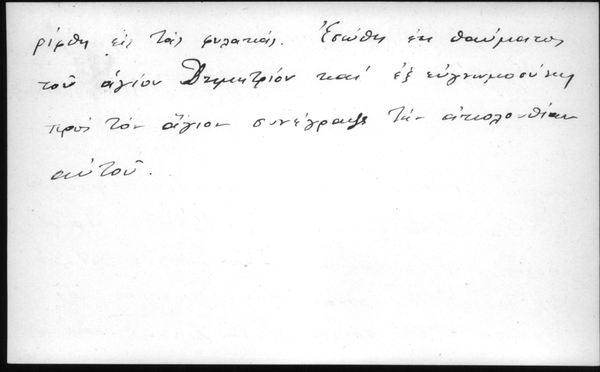 ρίφθη εἰς τὰς φυλακάς. Ἐσώθη ἐκ θαύματος
τοῦ ἁγίου Δημητρίου καὶ ἐξ εὐγνωμοσύνης
πρὸς τὸν ἅγιον συνέγραψε τὴν ἀκολουθίαν
αὐτοῦ.